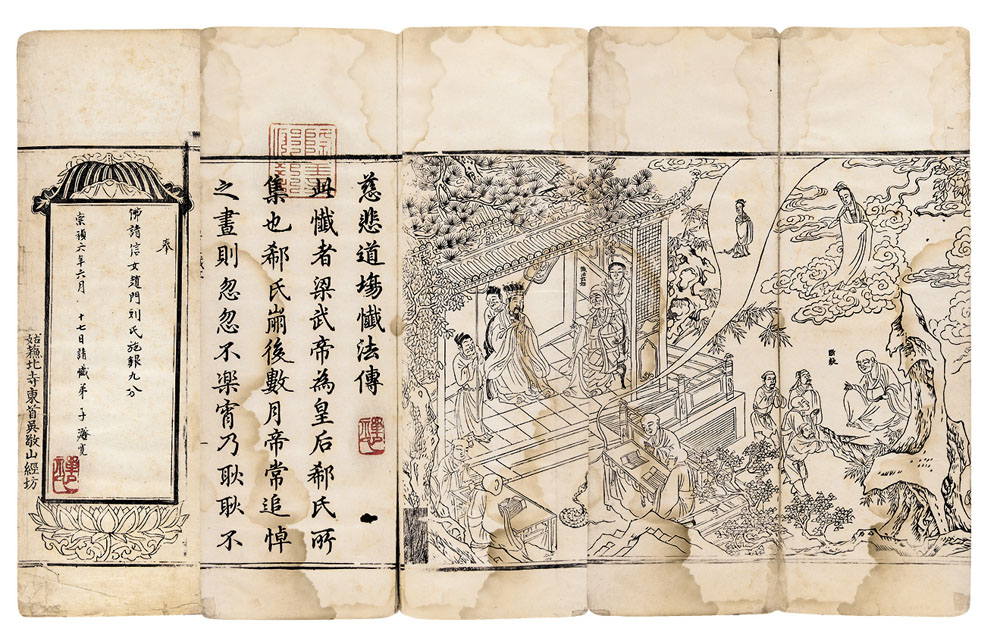 慈悲道塲懺法傳
此懺者梁武帝為皇后郗氏所
集也郗氏崩後數月帝常追悼
之晝則忽忽不樂宵乃耿耿不
奉
佛請信女趙門刘氏施銀九分
崇禎六年六月 十七日請懺弟子
姑蘓北寺東首吳敬山經坊